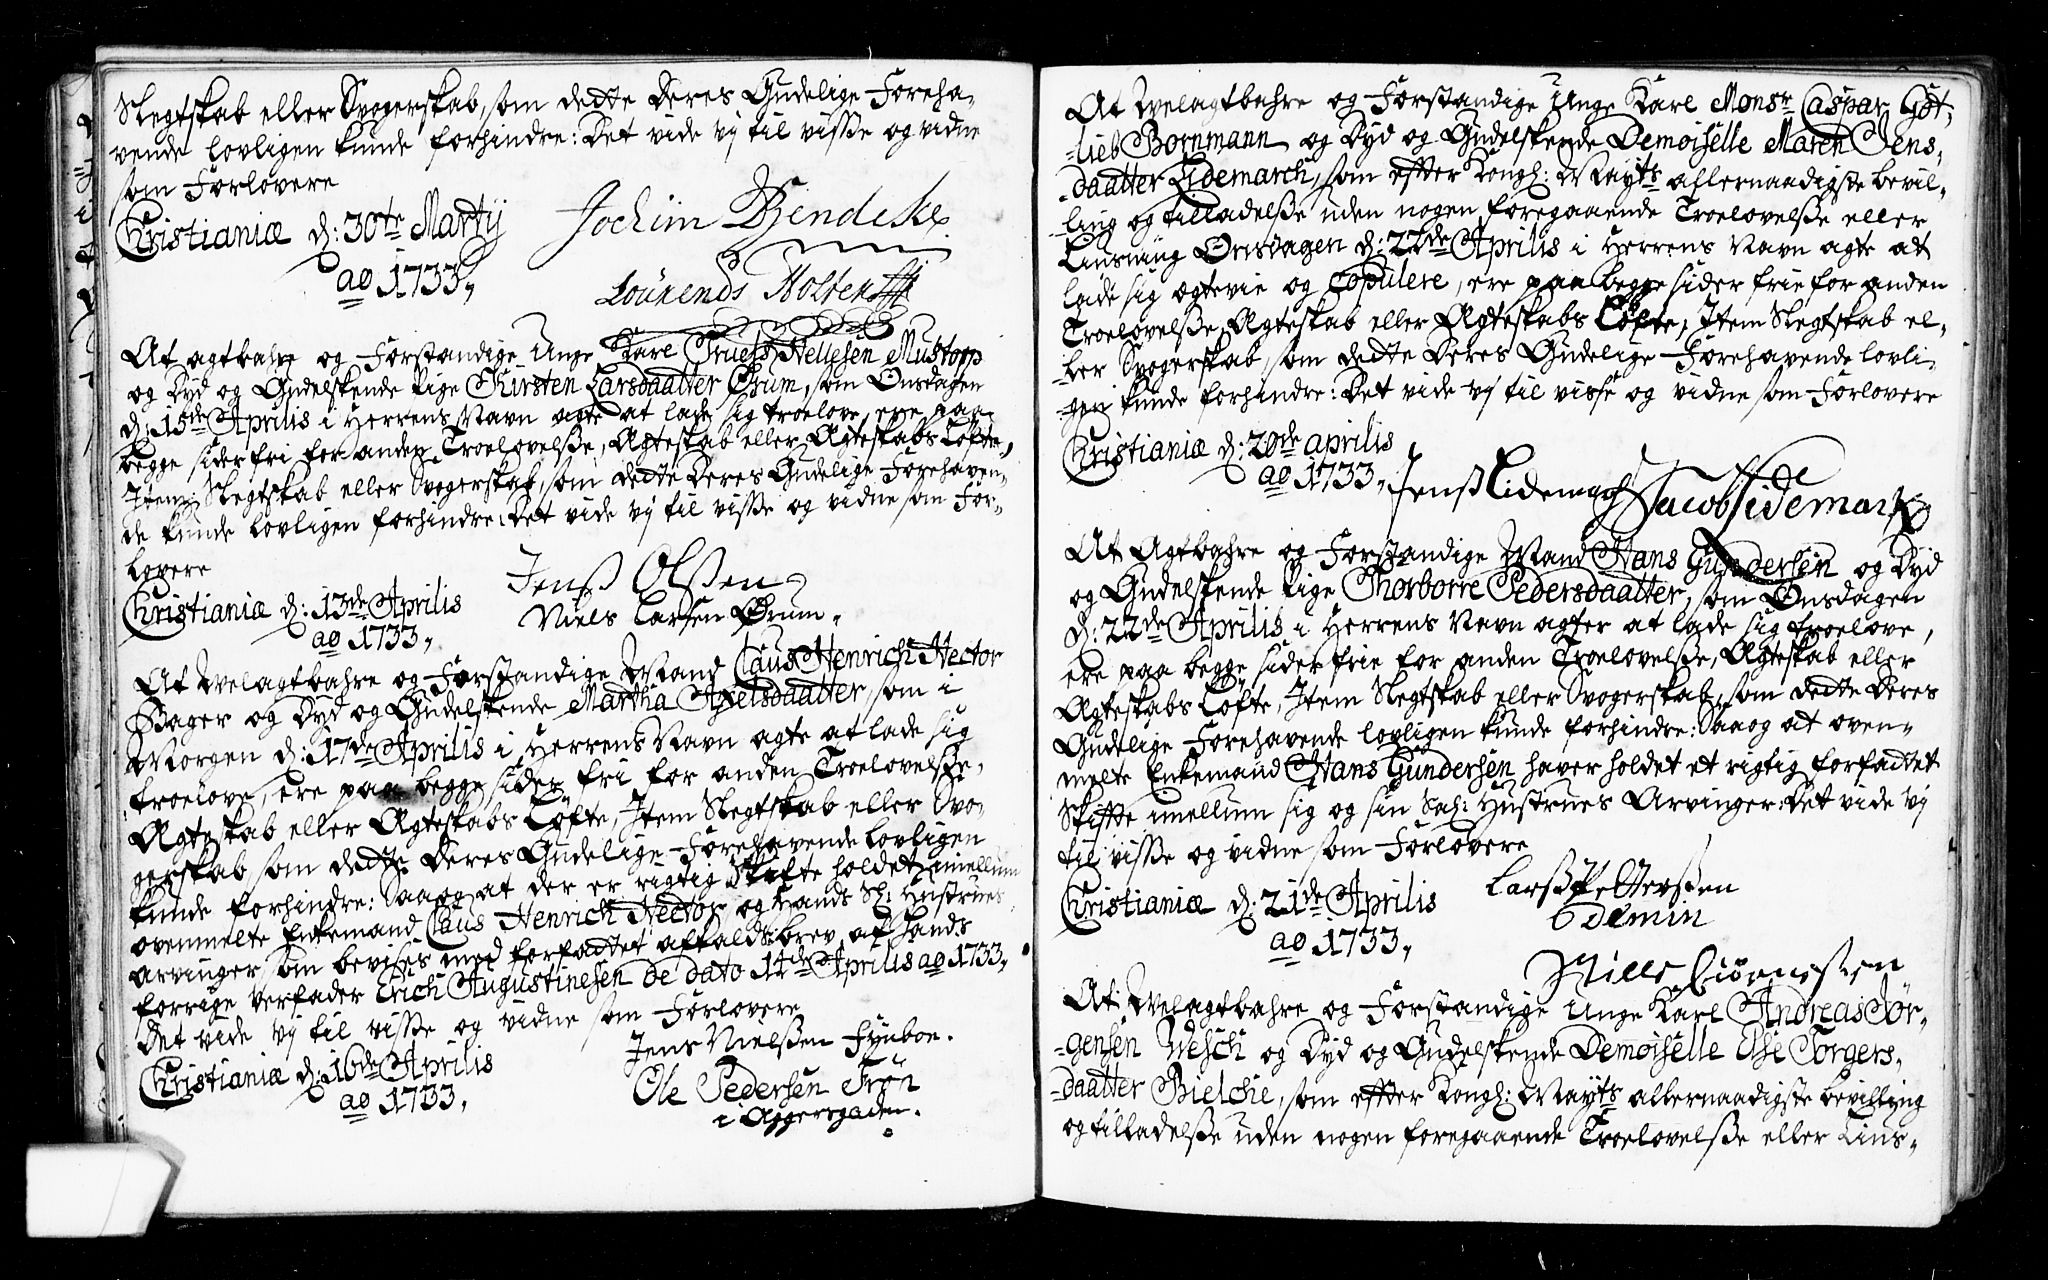 Slegtskab eller Svogerskab, som dette deres Gudelige Foreha-
vende lovligen kunde forhindre: Det vide vj til visse og vidne
som Forlovere
Christianiæ d: 30te Martij
ao 1733,
Jochim Bendeke
Lourends Holter
At agtbahre og Forstandige Unge Karl Truels Hellesen Mustorp
og Dyd og Gudelskende Pige Kirsten Larsdaatter Ørum, som Onsdagen
d: 15de Aprilis i Herrens Navn agte at lade sig troelove, ere paa
begge sider fri for anden Troelovelsse, Ægteskab eller Ægteskabs Løfte,
Item Slegtskab eller Svogerskab, som dette deres Gudelige Forehaven-
de kunde lovligen forhindre: Det vide vj til visse og vidne som For-
lovere
Christianiæ d: 13de Aprilis
ao 1733,
Jens Olssen
Niels Larsen Ørum.
At Welagtbahre og Forstandige Mand Claus Henrich Hector
Bager og Dyd og Gudelskende Martha Axelsdaatter, som i
Morgen d: 17de Aprilis i Herrens Navn agte at lade sig
troelove, ere paa begge sider fri for anden Troelovelsse,
Ægteskab eller Ægteskabs Løfte, Item Slegtskab eller Svo-
gerskab som dette deres Gudelige Forehavende lovligen
kunde forhindre: Saa og at der er rigtig Skifte holdet imellum
ovenmelte Enkemand Claus Henrich Hector og Hands Sl: Hustrues
arvinger, som bevises med forfattet afkaldsbrev af Hands
forrige Verfader Erich Augustinesen de dato 14de Aprilis ao 1733,
Det vide vj til visse og vidne som Forlovere
Christianiæ d: 16de Aprilis
ao 1733,
Jens Nielssen Fynboe.
Ole Pedersen Trøn
i Aggersgaden.
At Welagtbahre og Forstandige Unge Karl Monsr Caspar Got-
-lieb Bornmann og Dyd og Gudelskende Demoiselle Maren Jens-
-daatter Lidemarch, som efter Kongl: Mayts allernaadigste bevil-
-ling og tilladelsse uden nogen foregaaende Troelovelsse eller
Liusning Onsdagen d: 22de Aprilis i Herrens Navn agte at
lade sig ægtevie og Copulere, ere paa begge sider frie for anden
Troelovelsse, Ægteskab eller Ægteskabs Løfte, Item Slegtskab el-
-ler Svogerskab, som dette deres Gudelige Forehavende lovli-
-gen kunde forhindre: Det vide vj til visse og vidne som Forlovere
Christianiæ d: 20de aprilis
ao 1733,
Jens Lidemarch Jacob Lidemark
At Agtbahre og Forstandige Mand Hans Gundersen og Dyd
og Gudelskende Pige Thorborre Pedersdaatter, som Onsdagen
d: 22de Aprilis i Herrens Navn agter at lade sig troelove,
ere paa begge sider frie for anden Troelovelsse, Ægteskab eller
Ægteskabs Løfte, Item Slegtskab eller Svogerskab, som dette deres
Gudelige Forehavende lovligen kunde forhindre: Saa og at oven-
melte Enkemand Hans Gundersen haver holdet et rigtig forfattet
Skifte imellum sig og sin Sal: Hustrues Arvinger: Det vide vj
til visse og vidne som Forlovere
Christianiæ d: 21de Aprilis
ao 1733,
Larss Petterssen
Odemin
Niels
At Welagtbahre og Forstandige Unge Karl Andreas Jør-
-gensen Wesch og Dyd og Gudelskende Demoiselle Else Torgers-
-daatter Bielche, som efter Kongl: Mayts allernaadigste bevilling
og tilladelsse uden nogen foregaaende Troelovelsse eller Lius-